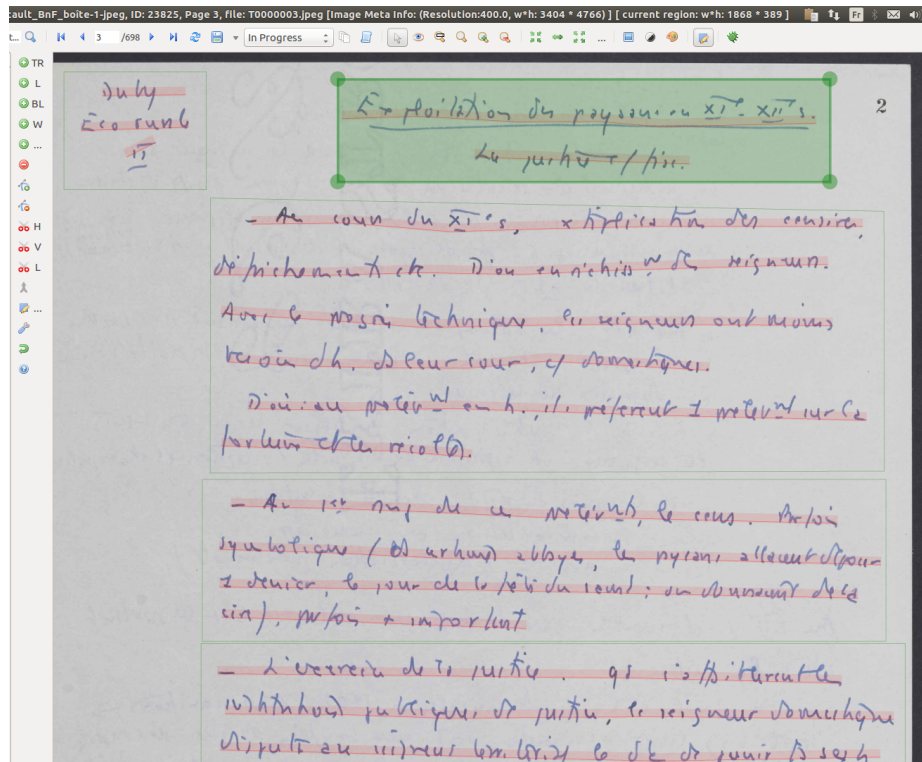 cault_BnF_boite-1-jpeg, ID: 23825, Page 3, file: T0000003.jpeg [Image Meta Info: (Resolution:400.0, w*h: 3404 * 4766) ] [ current region: w*h: 1868 * 389 ]
Fr
t... 3 /698 In Progress ...
TR
L
BL
W
...
H
V
L
...
Duby
Eco rurale
II
2
Exploitation du paysan au XIe - XIIe s.
La justice / fisc.
- Au cours du XIe s,
défrichement etc. D'où enrichissmt des seigneurs.
Avec le progrès technique, les seigneurs ont moins
besoin d'h. ds leur cour, c/ domestiques.
D'où : au prélèvmt en h., ils préfèrent 1 prélèvmt sur la
fortune et les récoltes.
- Au 1er rang de ces prélèvmts, le cens. Parfois
symbolique ( abbaye, les paysans
1 denier, le jour de la fête du saint ; on donnait de la
cire), parfois + important
- L'exercice de la justice.
institutions publiques de justice, le seigneur domestique